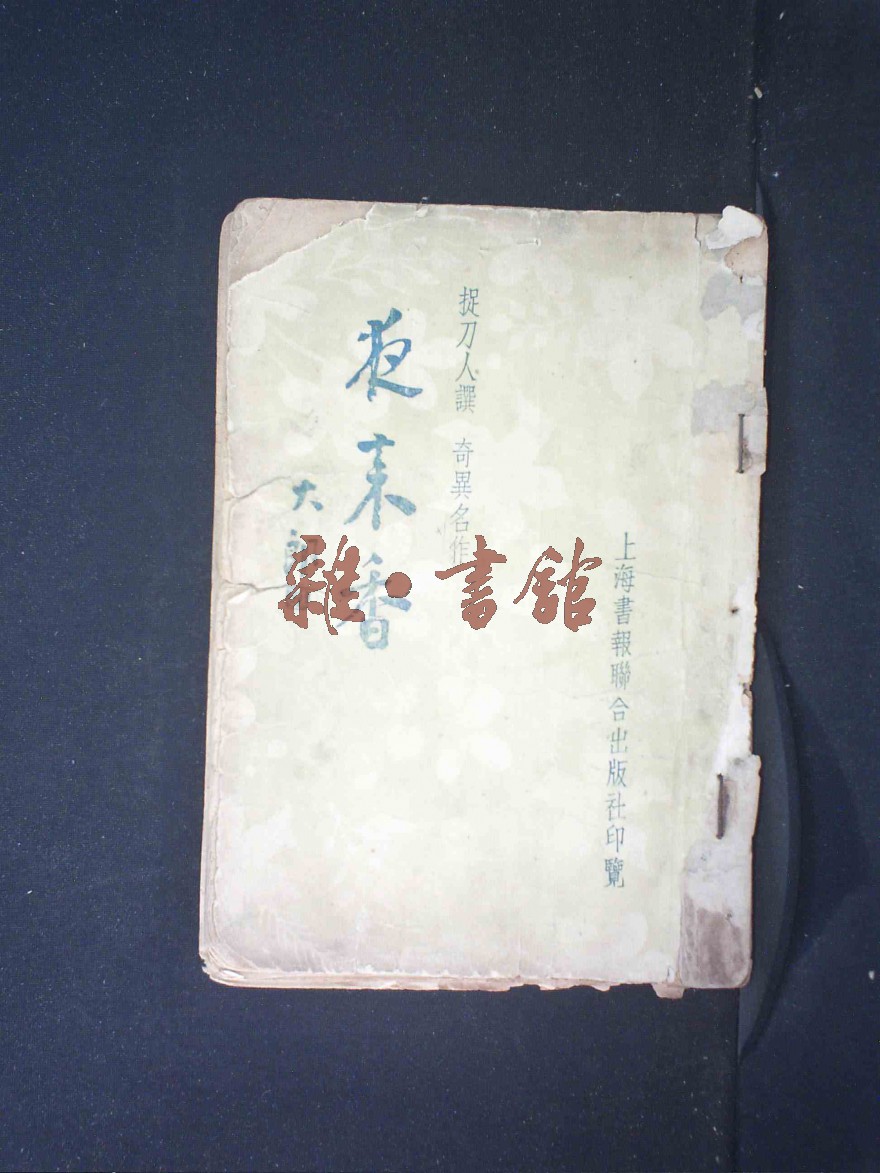 上海書報聯合出版社印覽
捉刀人譔 奇異名作
夜来香
大郎
雜·書館